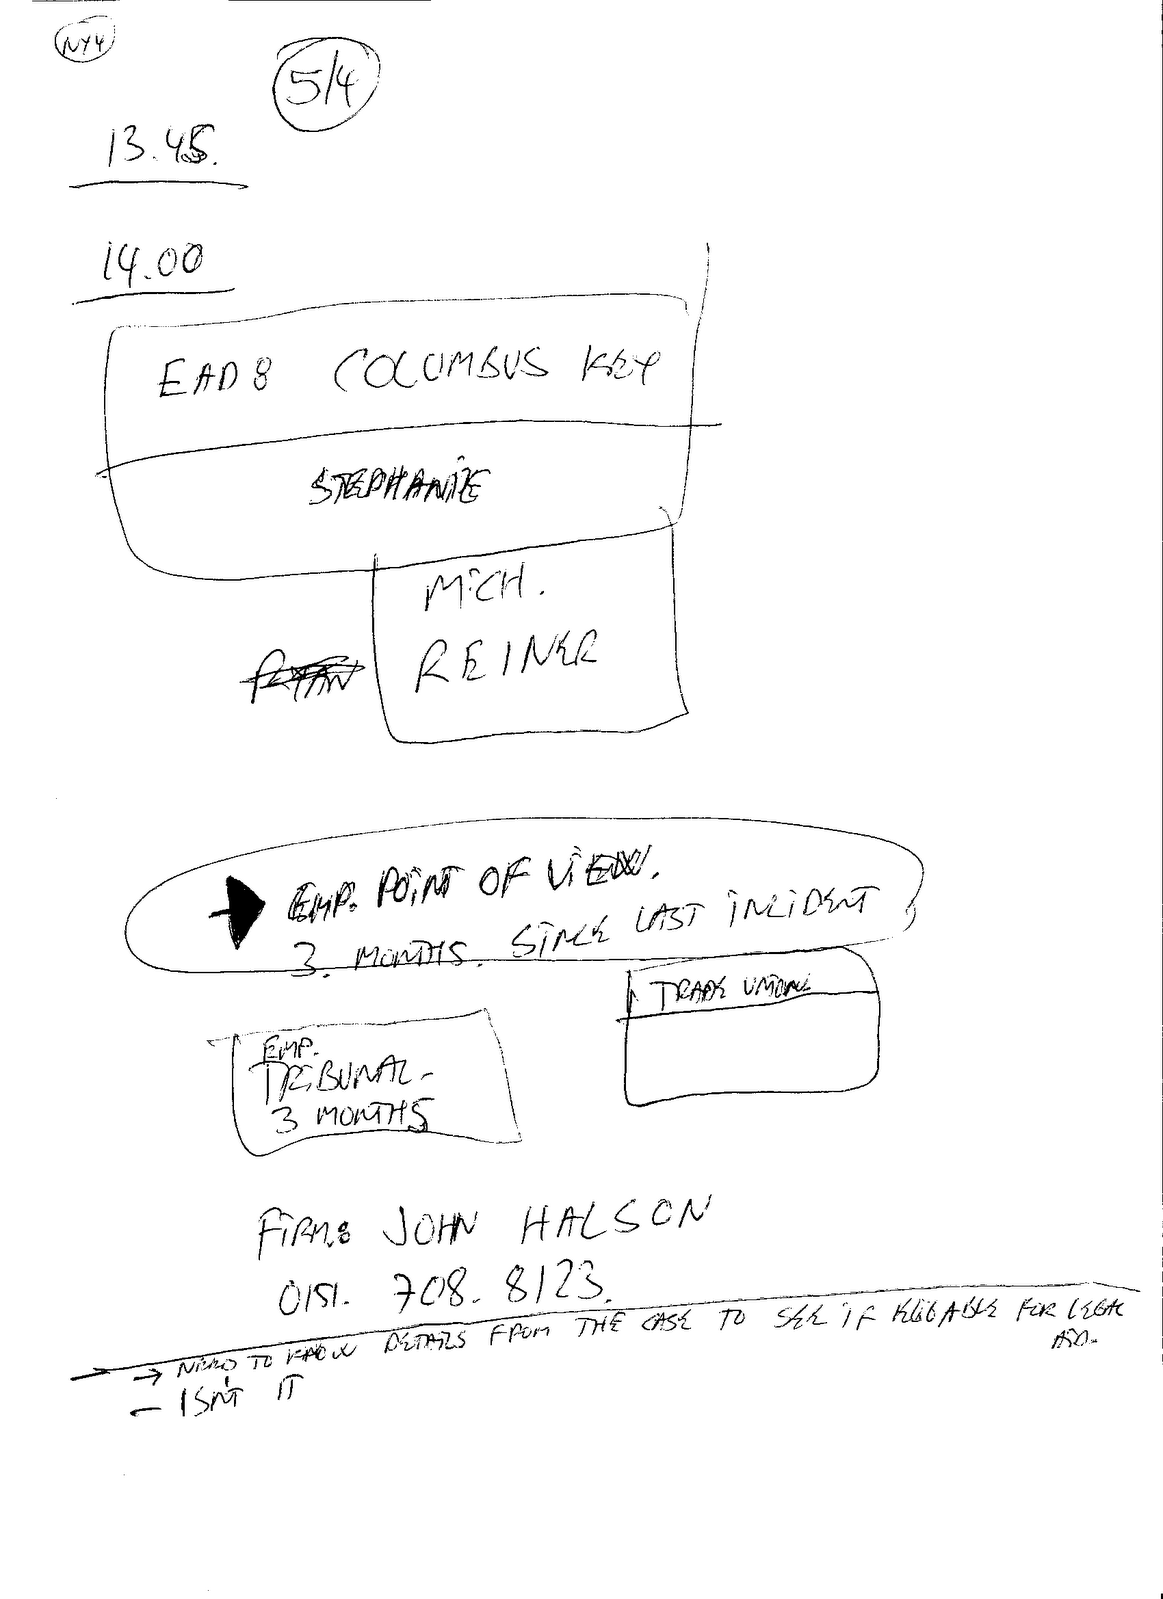 NY4
5/4
13.45.
14.00
EAD8 COLUMBUS KEY
STEPHANIE
MICH.
RYAN
REINER
EMP. POINT OF VIEW.
3. MONTHS. SINCE LAST INCIDENT
TRADE UNION
EMP.
TRIBUNAL-
3 MONTHS
FIRM: JOHN HALSON
0151. 708. 8123.
→ NEED TO KNOW DETAILS FROM THE CASE TO SEE IF FOR LEGAL
AID.
- ISN'T IT